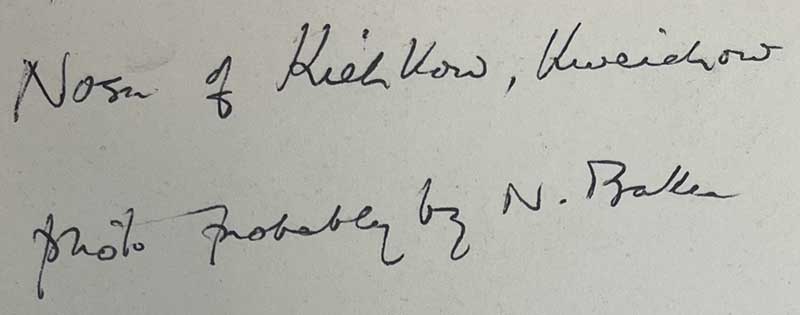 Nosu of Kiehkow, Kweichow
photo probably by N. Baker